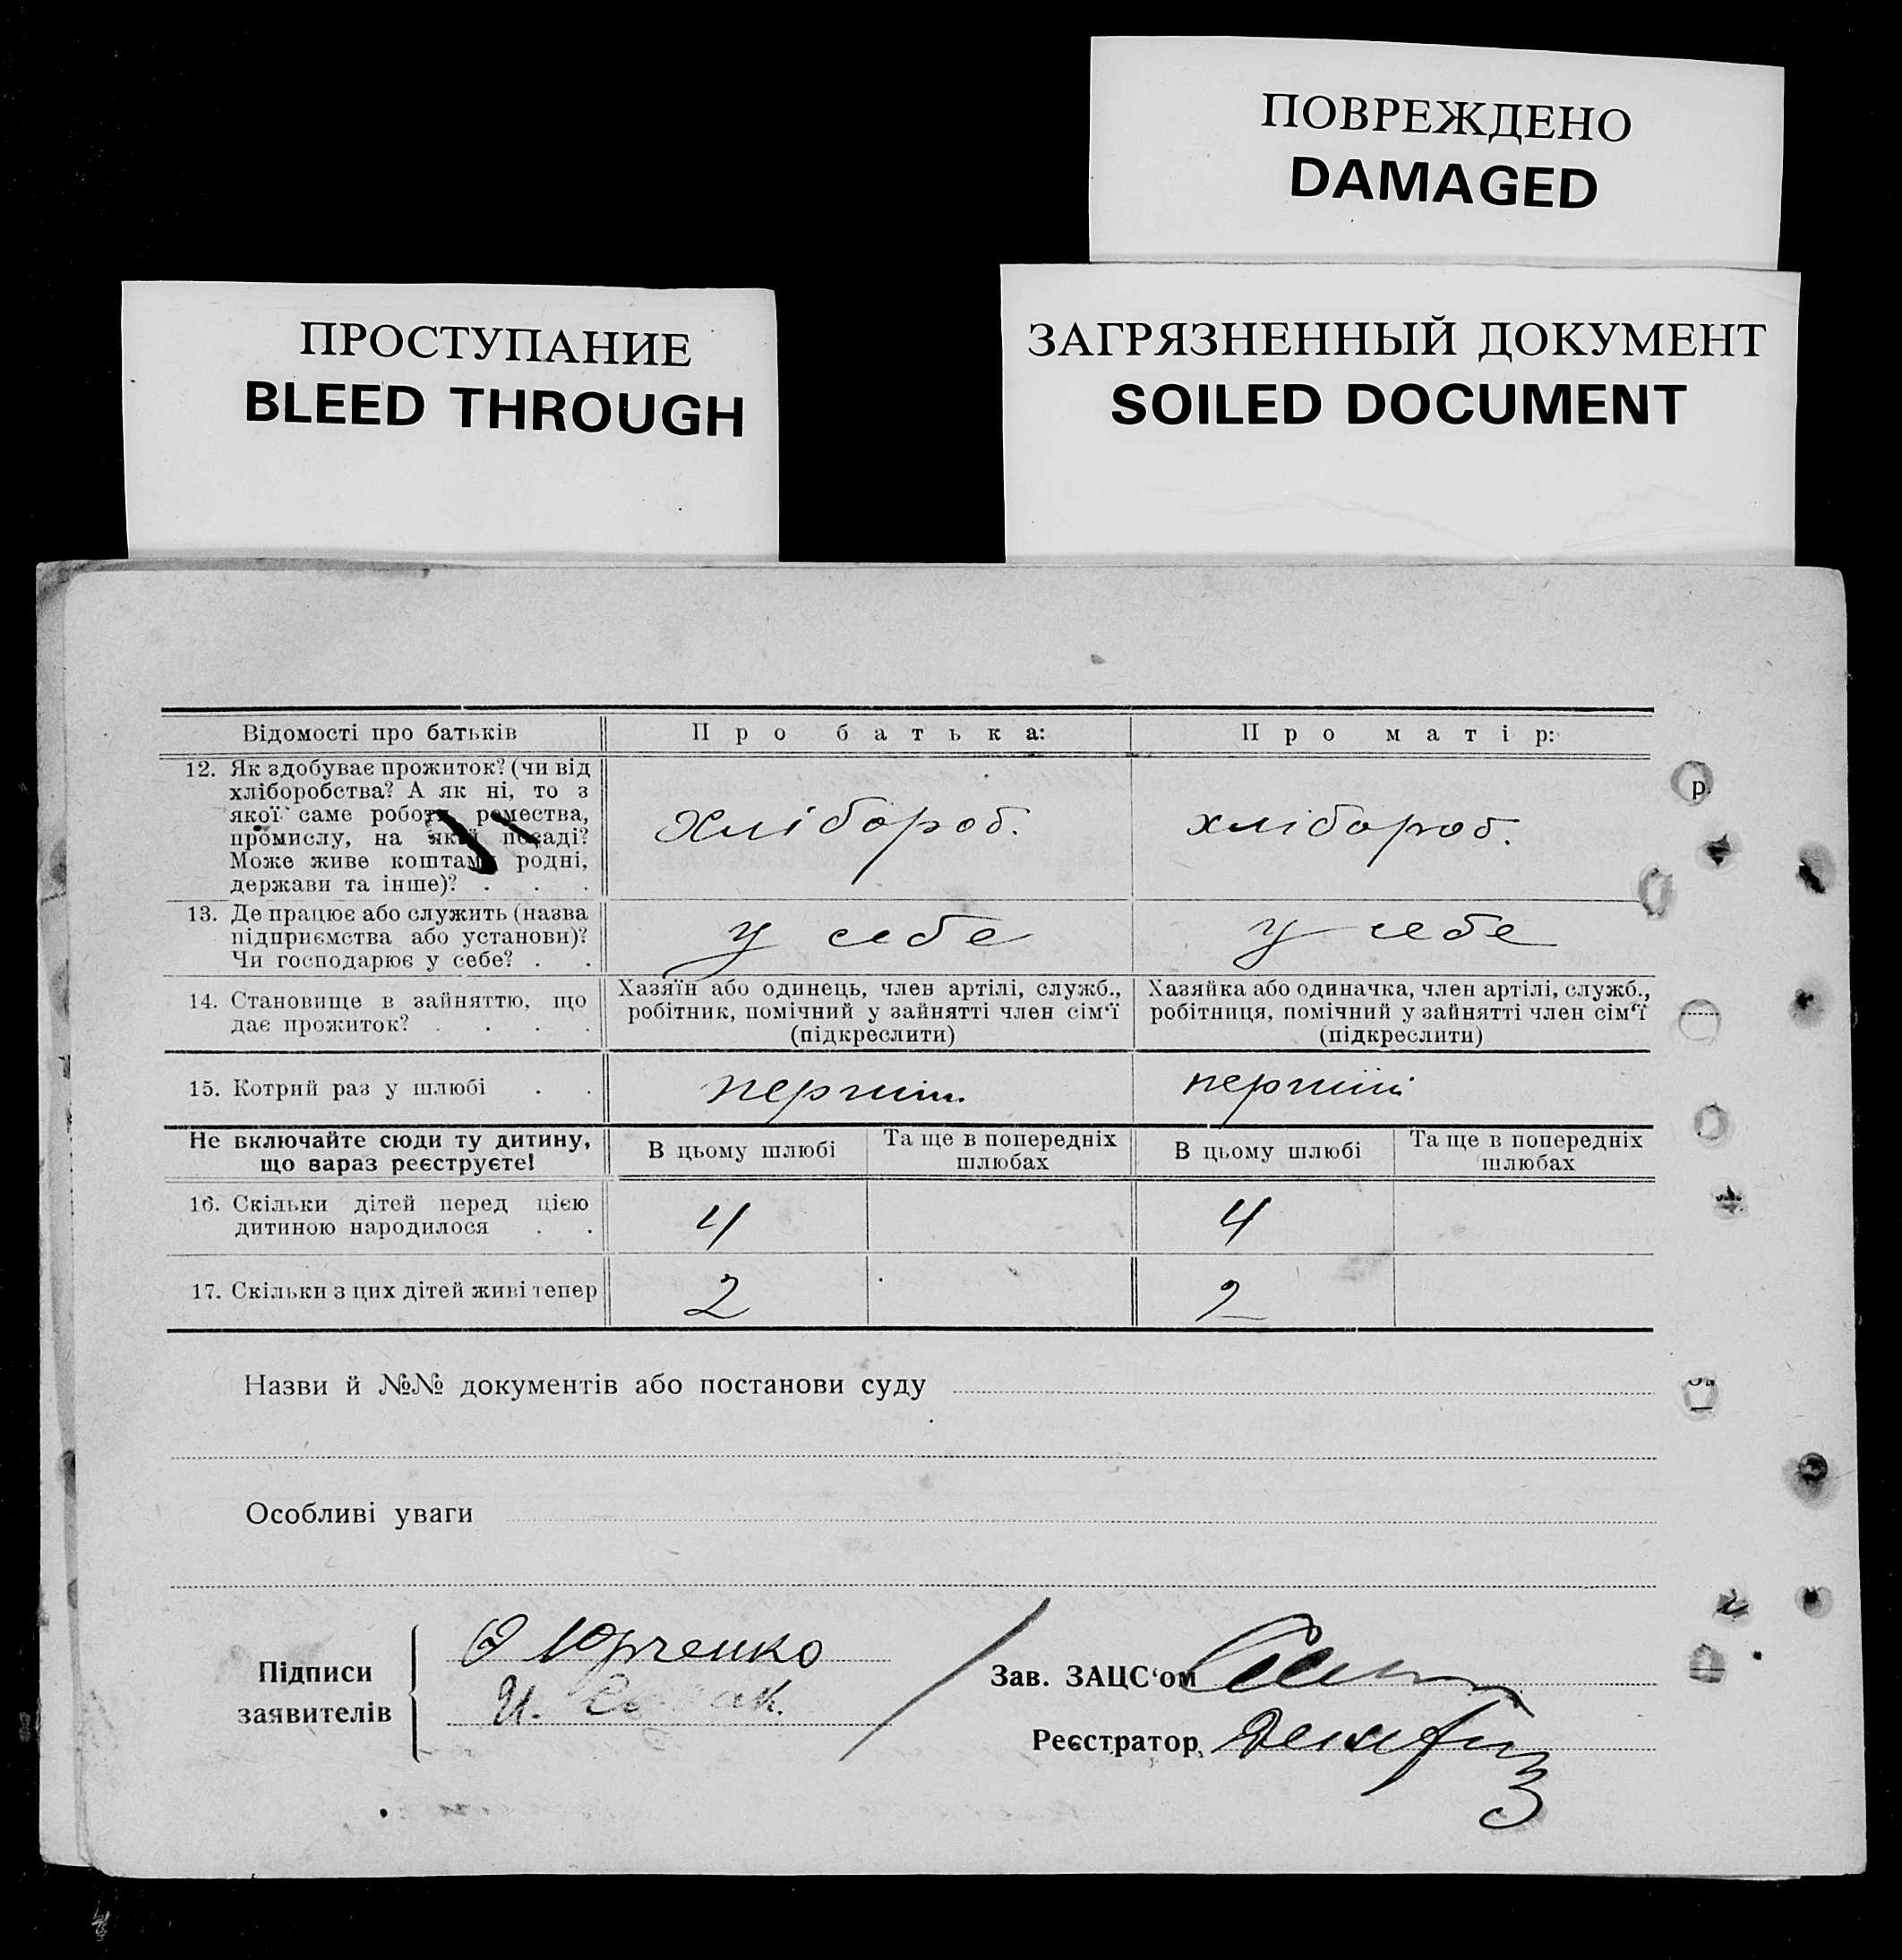 ПОВРЕЖДЕНО
DAMAGED
ПРОСТУПАНИЕ
BLEED THROUGH
ЗАГРЯЗНЕННЫЙ ДОКУМЕНТ
SOILED DOCUMENT
Відомості про батьків
Про батька:
Про матір:
12. Як здобуває прожиток? (чи від
хліборобства? А як ні, то з
якої саме роботи, ремества,
промислу, на якій посаді?
Може живе коштами родні,
держави та інше)? . . .
Хлібороб.
хлібороб.
р.
13. Де працює або служить (назва
підприємства або установи)?
Чи господарює у себе? . .
у себе
у себе
14. Становище в зайняттю, що
дає прожиток? . . . .
Хазяїн або одинець, член артілі, служб.,
робітник, помічний у зайнятті член сім'ї
(підкреслити)
Хазяйка або одиначка, член артілі, служб.,
робітниця, помічний у зайнятті член сім'ї
(підкреслити)
15. Котрий раз у шлюбі . .
перший
перший
Не включайте сюди ту дитину,
що вараз реєструєте!
В цьому шлюбі
Та ще в попередніх
шлюбах
В цьому шлюбі
Та ще в попередніх
шлюбах
16. Скільки дітей перед цією
дитиною народилося . .
4
4
17. Скільки з цих дітей живі тепер
2
2
Назви й №№ документів або постанови суду
Особливі уваги
Підписи
заявителів
О Юрченко
И.
Зав. ЗАЦС'ом
Реєстратор